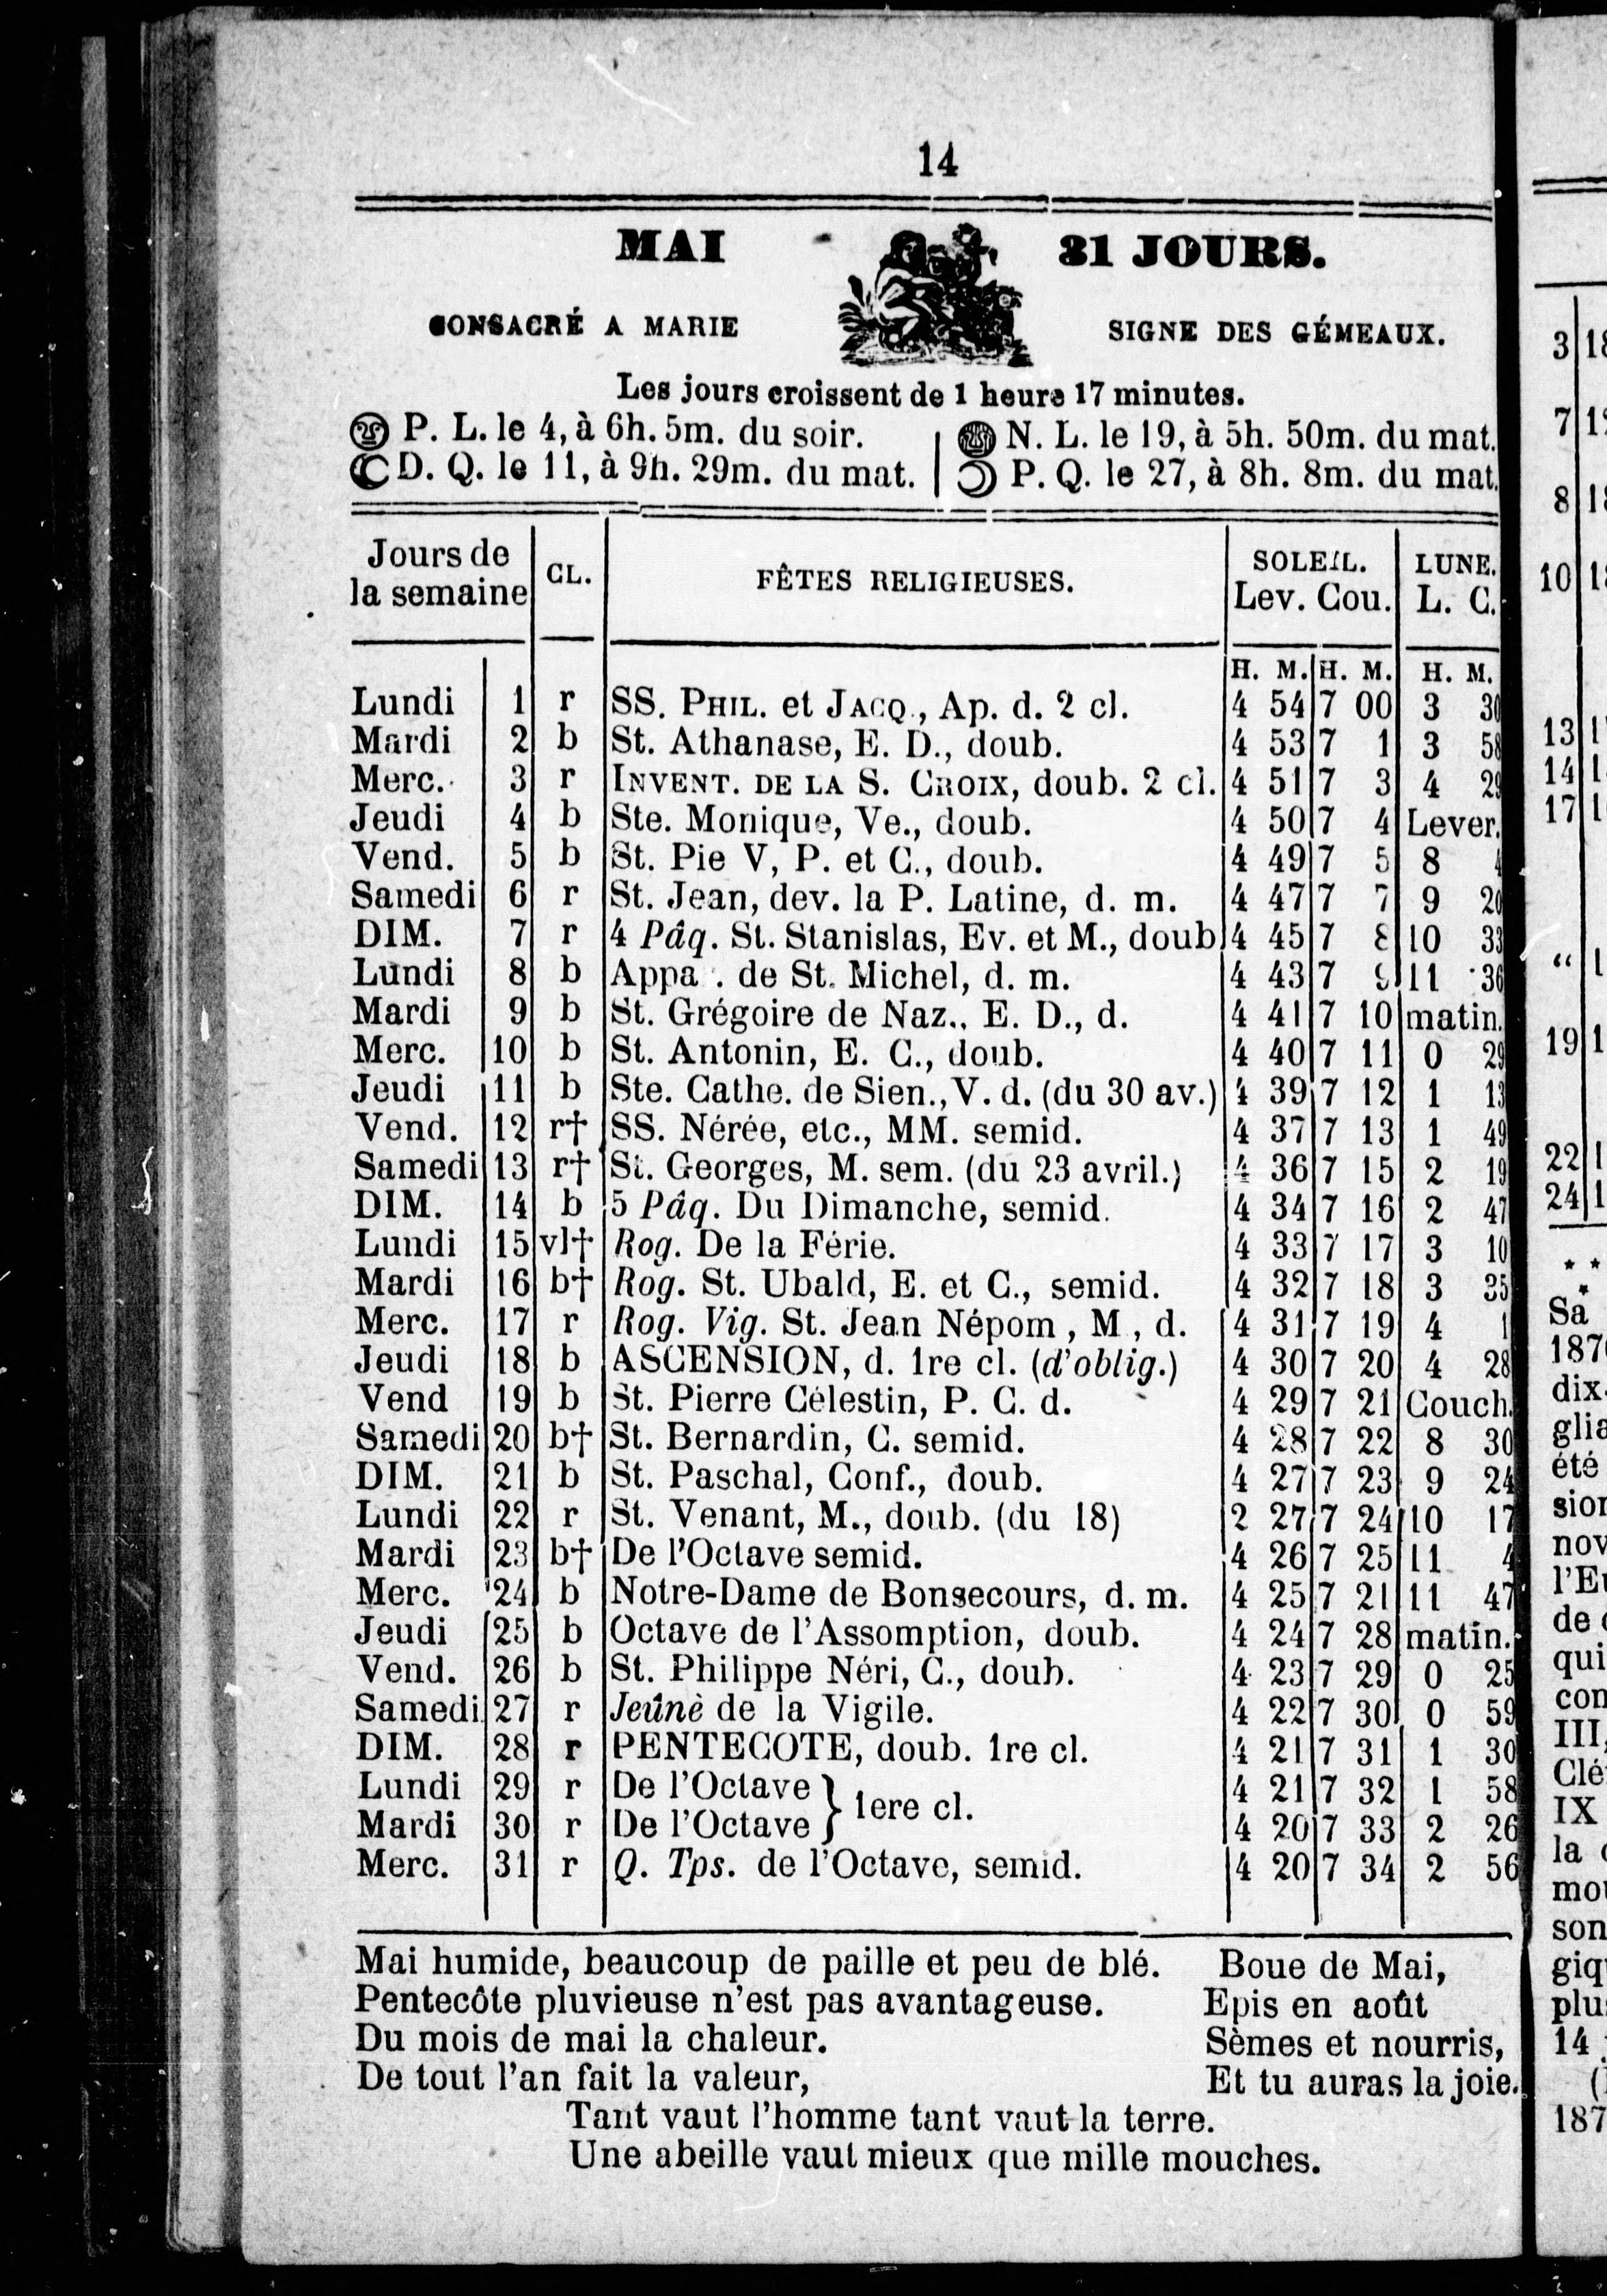 14
MAI 31 JOURS.
CONSACRÉ A MARIE SIGNE DES GÉMEAUX.
Les jours croissent de 1 heure 17 minutes.
P. L. le 4, à 6h. 5m. du soir. N. L. le 19, à 5h. 50m. du mat.
D. Q. le 11, à 9h. 29m. du mat. P. Q. le 27, à 8h. 8m. du mat.
Jours de la semaine CL. FÊTES RELIGIEUSES. SOLEIL. LUNE.
Lev. Cou. L. C.
H. M. H. M. H. M.
Lundi 1 r SS. PHIL. et JACQ., Ap. d. 2 cl. 4 54 7 00 3 30
Mardi 2 b St. Athanase, E. D., doub. 4 53 7 1 3 58
Merc. 3 r INVENT. DE LA S. CROIX, doub. 2 cl. 4 51 7 3 4 29
Jeudi 4 b Ste. Monique, Ve., doub. 4 50 7 4 Lever.
Vend. 5 b St. Pie V, P. et C., doub. 4 49 7 5 8 4
Samedi 6 r St. Jean, dev. la P. Latine, d. m. 4 47 7 7 9 20
DIM. 7 r 4 Pâq. St. Stanislas, Ev. et M., doub 4 45 7 8 10 33
Lundi 8 b Appa . de St. Michel, d. m. 4 43 7 9 11 36
Mardi 9 b St. Grégoire de Naz., E. D., d. 4 41 7 10 matin.
Merc. 10 b St. Antonin, E. C., doub. 4 40 7 11 0 29
Jeudi 11 b Ste. Cathe. de Sien., V. d. (du 30 av.) 4 39 7 12 1 13
Vend. 12 r† SS. Nérée, etc., MM. semid. 4 37 7 13 1 49
Samedi 13 r† St. Georges, M. sem. (du 23 avril.) 4 36 7 15 2 19
DIM. 14 b 5 Pâq. Du Dimanche, semid. 4 34 7 16 2 47
Lundi 15 vl† Rog. De la Férie. 4 33 7 17 3 10
Mardi 16 b† Rog. St. Ubald, E. et C., semid. 4 32 7 18 3 35
Merc. 17 r Rog. Vig. St. Jean Népom , M , d. 4 31 7 19 4 1
Jeudi 18 b ASCENSION, d. 1re cl. (d'oblig.) 4 30 7 20 4 28
Vend 19 b St. Pierre Célestin, P. C. d. 4 29 7 21 Couch.
Samedi 20 b† St. Bernardin, C. semid. 4 28 7 22 8 30
DIM. 21 b St. Paschal, Conf., doub. 4 27 7 23 9 24
Lundi 22 r St. Venant, M., doub. (du 18) 2 27 7 24 10 17
Mardi 23 b† De l'Octave semid. 4 26 7 25 11 4
Merc. 24 b Notre-Dame de Bonsecours, d. m. 4 25 7 21 11 47
Jeudi 25 b Octave de l'Assomption, doub. 4 24 7 28 matin.
Vend. 26 b St. Philippe Néri, C., doub. 4 23 7 29 0 25
Samedi 27 r Jeûnè de la Vigile. 4 22 7 30 0 59
DIM. 28 r PENTECOTE, doub. 1re cl. 4 21 7 31 1 30
Lundi 29 r De l'Octave } 1ere cl. 4 21 7 32 1 58
Mardi 30 r De l'Octave 4 20 7 33 2 26
Merc. 31 r Q. Tps. de l'Octave, semid. 4 20 7 34 2 56
Mai humide, beaucoup de paille et peu de blé. Boue de Mai,
Pentecôte pluvieuse n'est pas avantageuse. Epis en août
Du mois de mai la chaleur. Sèmes et nourris,
De tout l'an fait la valeur, Et tu auras la joie.
Tant vaut l'homme tant vaut la terre.
Une abeille vaut mieux que mille mouches.